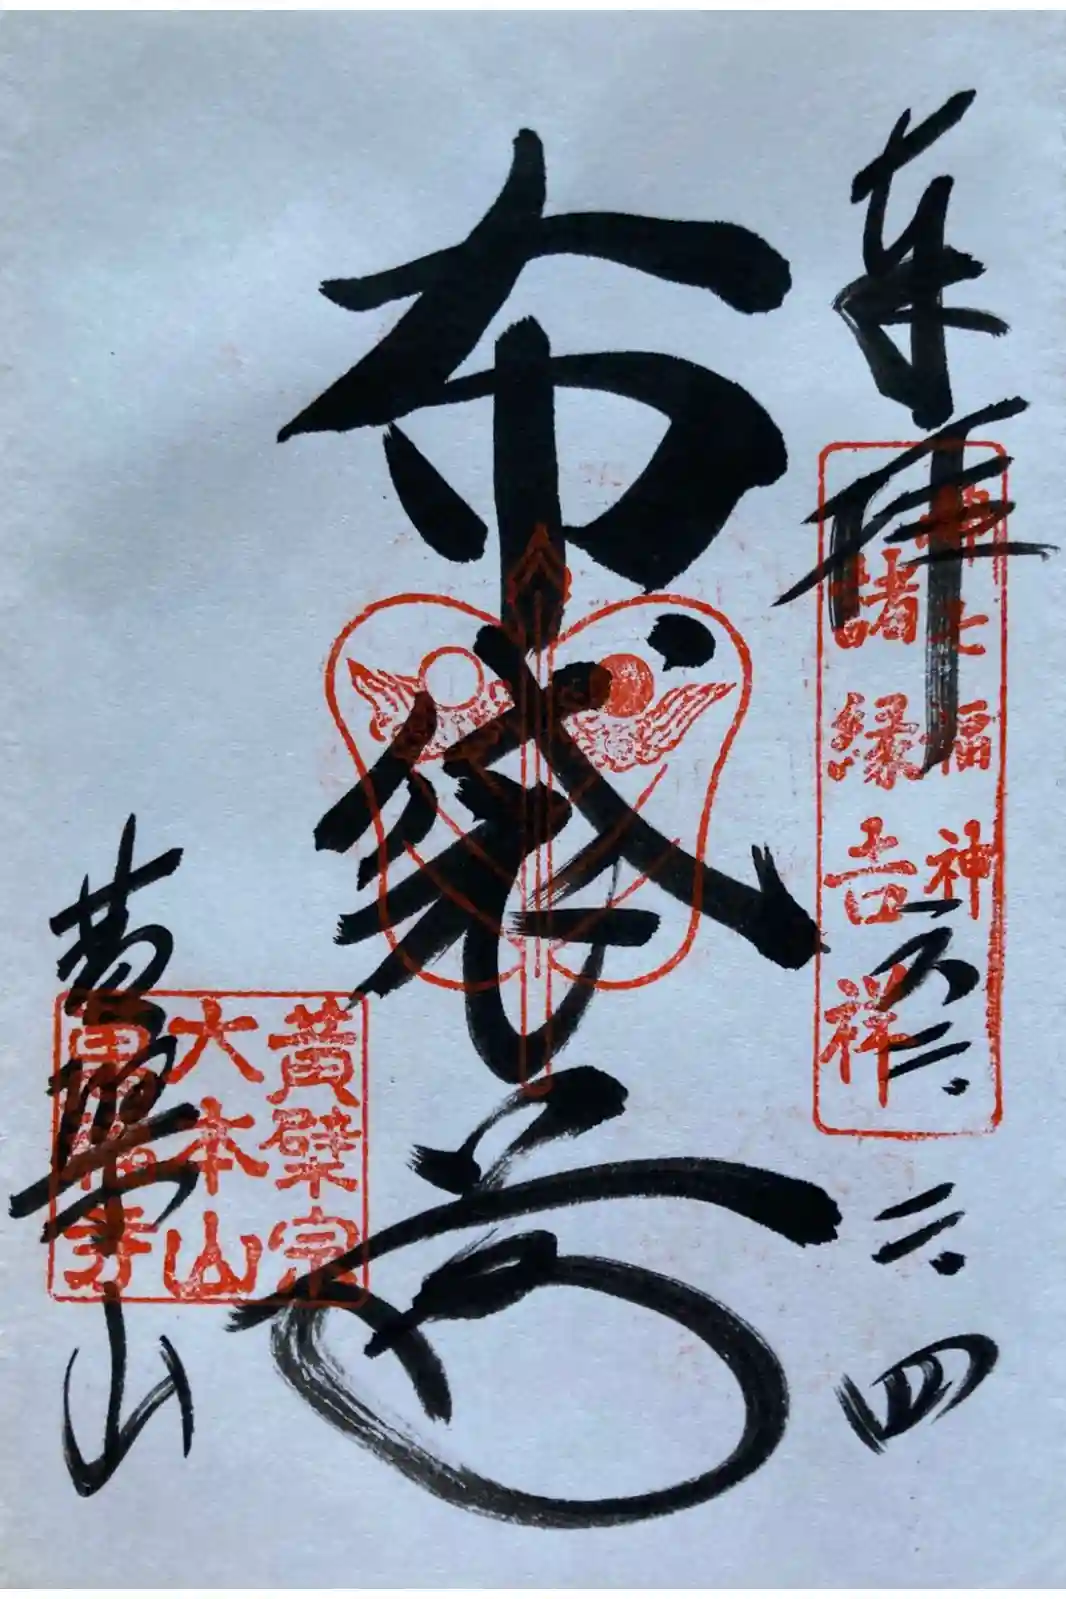 奉拝
都七福神
諸縁吉祥
布袋尊
黄檗山
黄檗宗
大本山
萬福寺